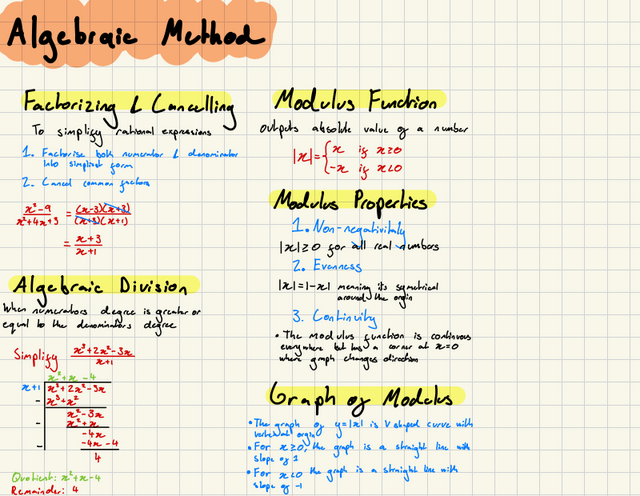 Algebraic Method
Factorizing & Cancelling
To simplify rational expressions
1. Factorise both numerator & denominator
into simplist form
2. Cancel common factors
x²-9/x²+4x+3 = (x-3)(x+3)/(x+3)(x+1)
= x+3/x+1
Algebraic Division
When numerators degree is greater or
equal to the denominators degree
Simplify x³+2x²-3x/x+1
x²+x-4
x+1 x³+2x²-3x
- x³+x²
x²-3x
- x²+x
-4x
- -4x-4
4
Quotient: x²+x-4
Remainder: 4
Modulus Function
outputs absolute value of a number
|x|={x if x≥0
-x if x<0
Modulus Properties
1. Non-negativitaly
|x|≥0 for all real numbers
2. Evenness
|x|=|-x| meaning its symetrical
around the orgin
3. Continuity
• The modulus function is continuous
everywhere but has a corner at x=0
where graph changes direction
Graph of Modulus
• The graph of y=|x| is V shaped curve with
vertex at orgin
• For x≥0, the graph is a straight line with
slope of 1
• For x<0 the graph is a straight line with
slope of -1